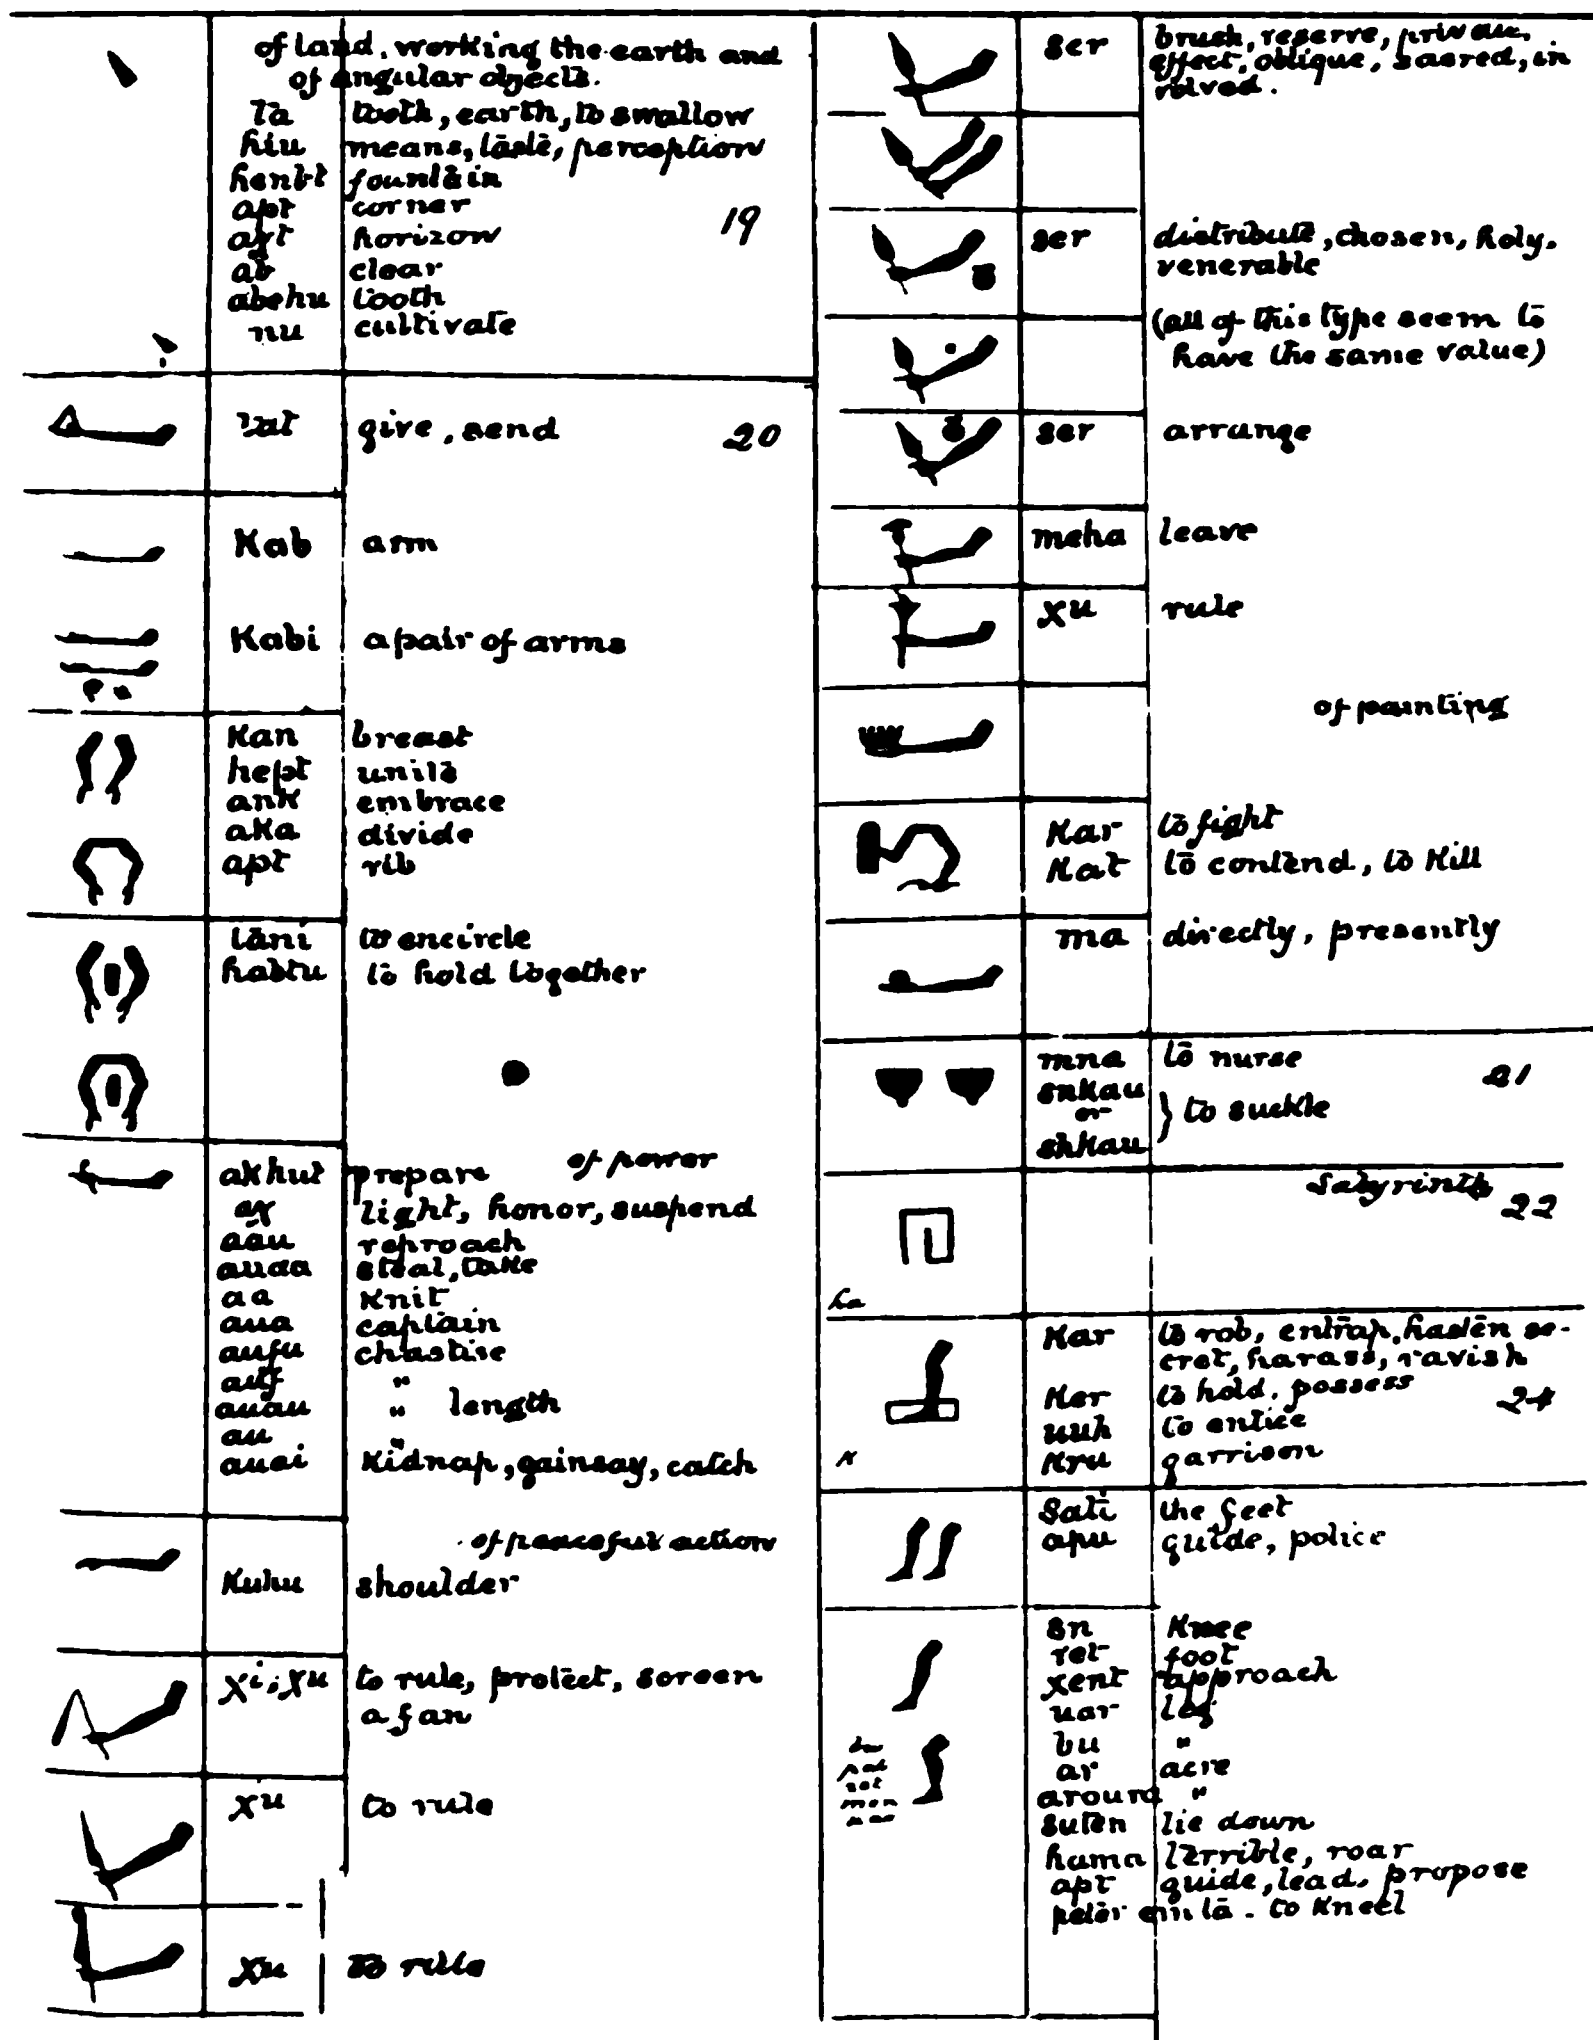 of land, working the earth and
of angular objects.
ta tooth, earth, to swallow
hiu means, taste, perception
henbt fountain
apt corner
19
axt horizon
ab clear
abehu tooth
nu cultivate
tat give, send
20
Kab arm
Kabi a pair of arms
Kan breast
hept unite
ank embrace
aka divide
apt rib
tani to encircle
habtu to hold together
of power
akhut prepare
ax light, honor, suspend
aau reproach
auaa steal, take
aa Knit
aua captain
aufu chastise
auf "
auau " length
au "
auai Kidnap, gainsay, catch
of peaceful action
Kuhu shoulder
xi, xu to rule, protect, screen
a fan
xu to rule
xu to rule
ser brush, reserve, private,
effect, oblique, sacred, in
volved.
ser distribute, chosen, holy,
venerable
(all of this type seem to
have the same value)
ser arrange
meha leave
xu rule
of painting
Kar to fight
Kat to contend, to Kill
ma directly, presently
mna to nurse
21
snkau
or
} to suckle
shkau
Labyrinth
22
ha
Kar to rob, entrap, hasten se-
cret, harass, ravish
Ker to hold, possess
24
uuh to entice
K
Kru garrison
Sati the feet
apu guide, police
sn Knee
ret foot
xent approach
uar leg
bu "
ar acre
aroura "
suten lie down
hama terrible, roar
apt guide, lead, propose
peter em ta - to Kneel